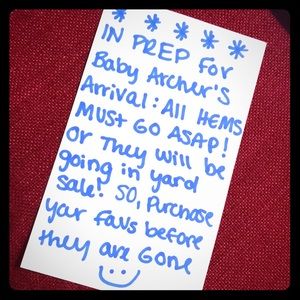 * * * * *
IN PREP FOR
Baby Archer's
Arrival: All ITEMS
MUST GO ASAP!
Or They will be
going in yard
sale! SO, Purchase
your favs before
they are Gone